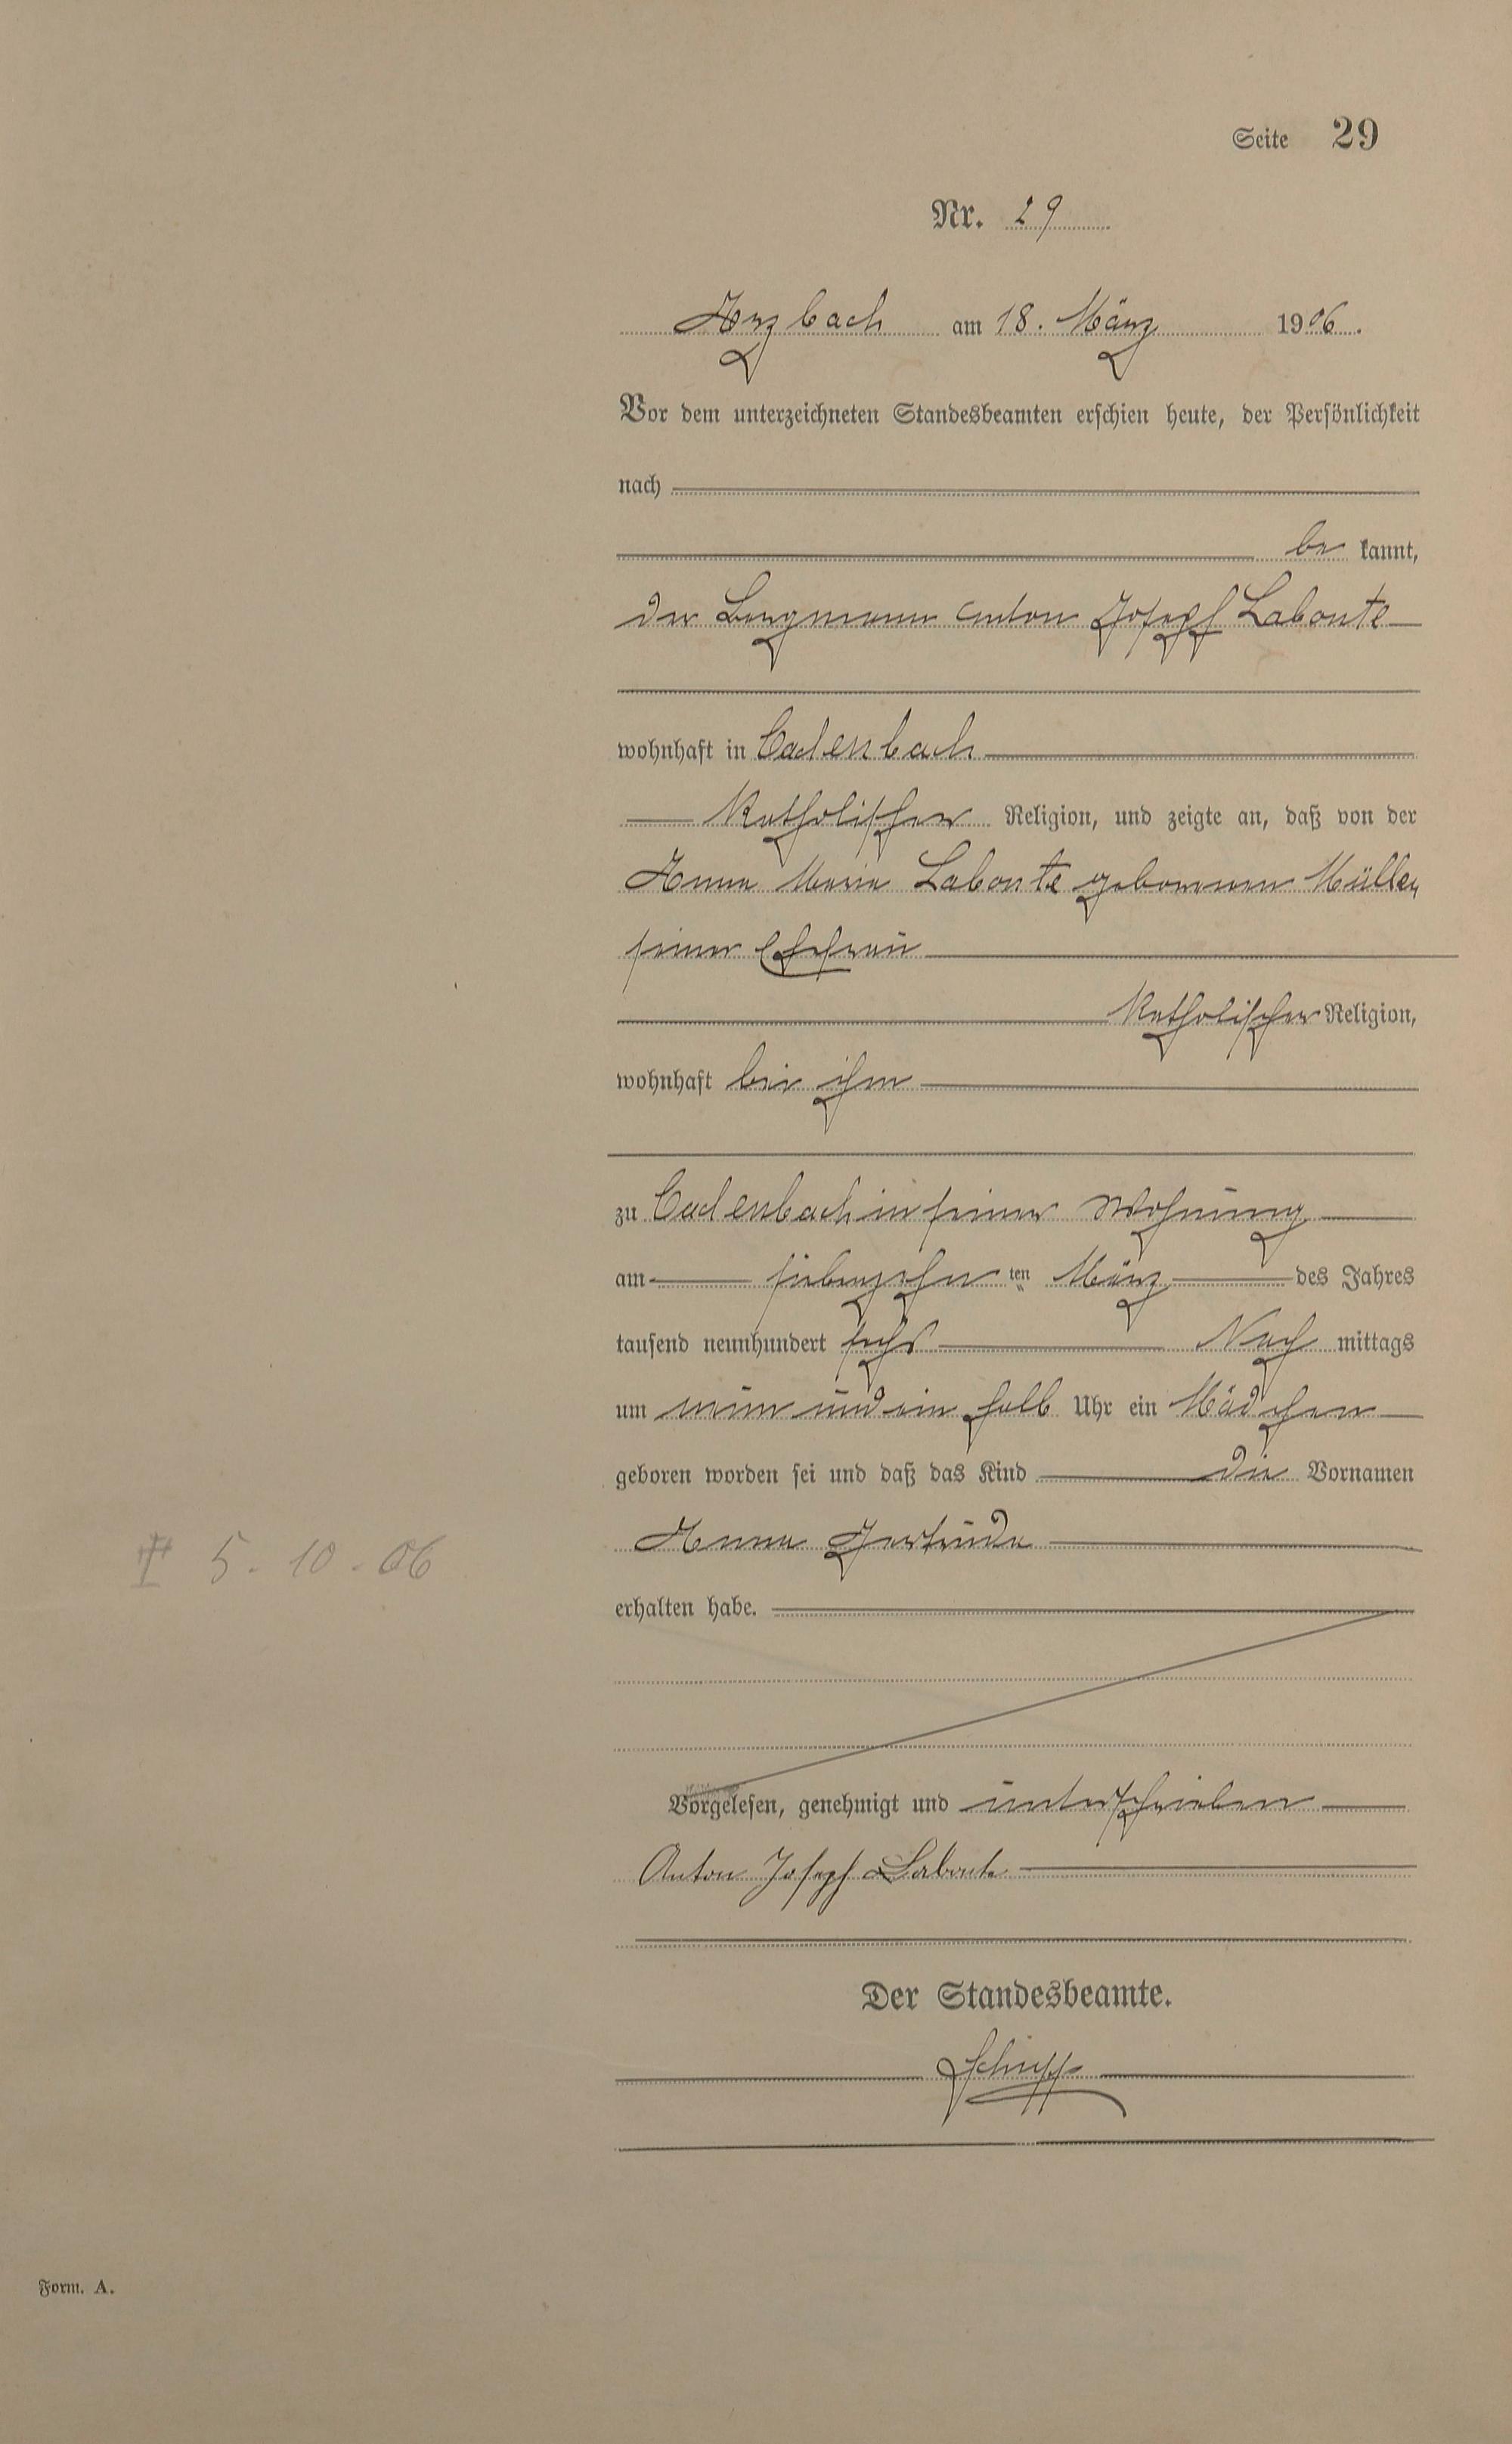 Seite 29
Nr. 29
Arzbach am 18. März 1906.
Vor dem unterzeichneten Standesbeamten erschien heute, der Persönlichkeit
nach
be kannt,
der Bergmann Anton Joseph Labonte
wohnhaft in Cadenbach
Katholischer Religion, und zeigte an, daß von der
Anna Maria Labonte geborenen Müller,
seiner Ehefrau
Katholischer Religion,
wohnhaft bei ihm
zu Cadenbach in seiner Wohnung
am siebenzehn ten März des Jahres
tausend neunhundert sechs Nach mittags
um neun und ein halb Uhr ein Mädchen
geboren worden sei und daß das Kind die Vornamen
Anna Gertrude
✝ 5.10.06
erhalten habe.
Vorgelesen, genehmigt und unterschrieben
Anton Joseph Labonte
Der Standesbeamte.
Schupp
Form. A.